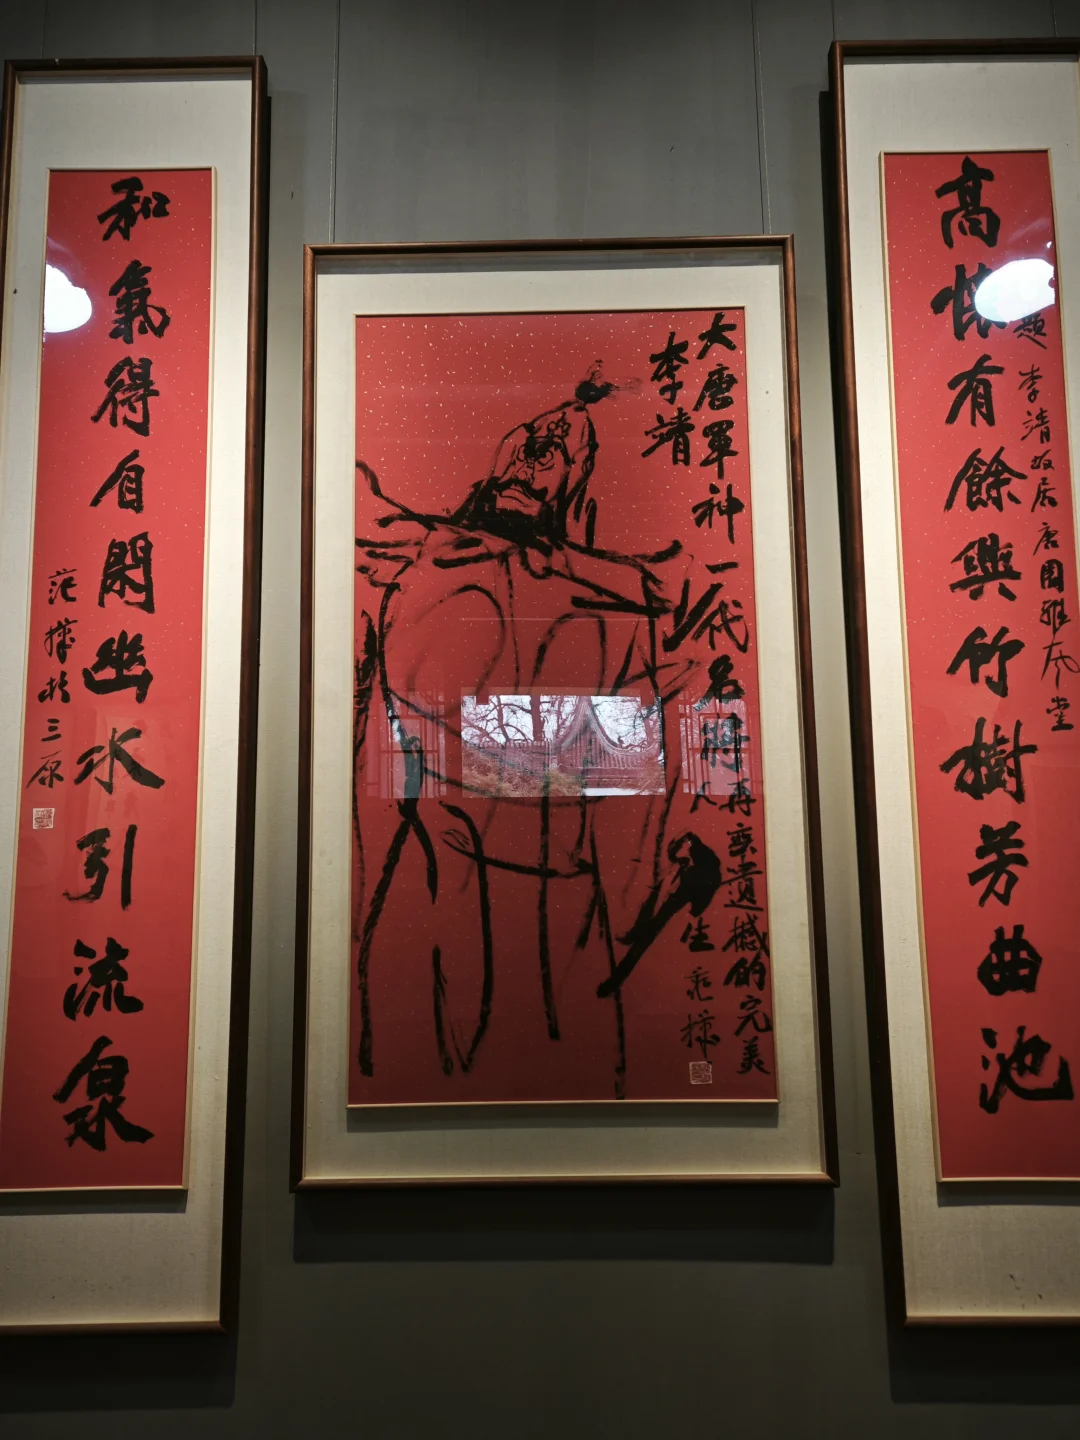 高懷有餘興竹樹芳曲池
題李靖故居唐園雅风堂
大唐軍神一代名將
李靖
再奕遺憾的完美
人生
和氣得自閑幽水引流泉
於三原